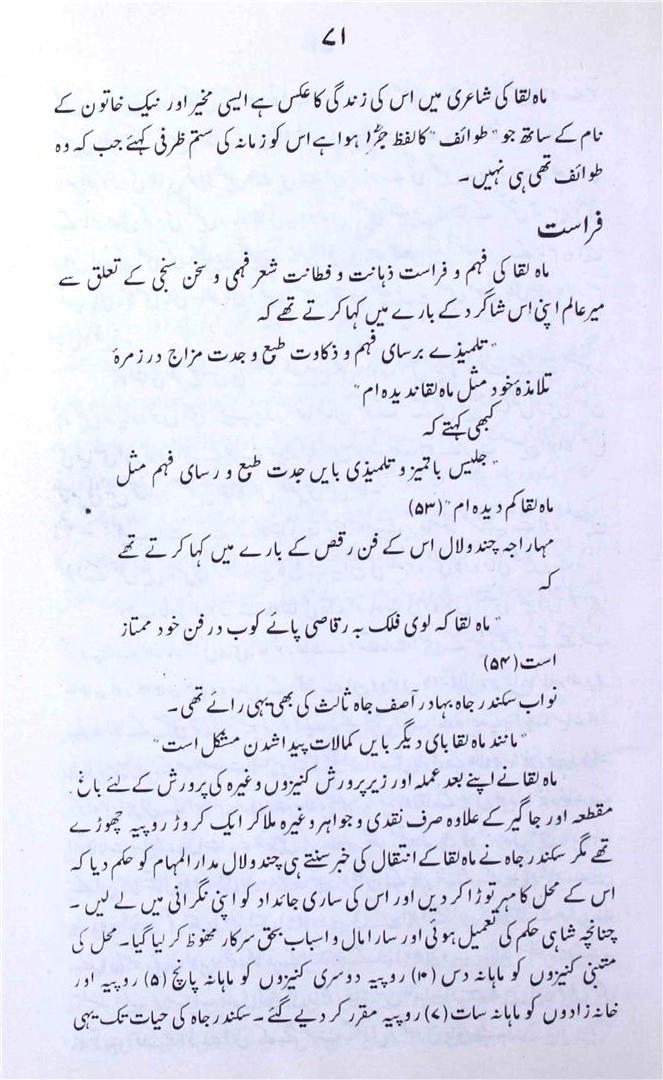 ۷۱
ماہ لقا کی شاعری میں اس کی زندگی کا عکس ہے ایسی مخیر اور نیک خاتون کے
نام کے ساتھ جو "طوائف" کا لفظ جڑا ہوا ہے اس کو زمانہ کی ستم ظرفی کہئے جب کہ وہ
طوائف تھی ہی نہیں۔
فراست
ماہ لقا کی فہم و فراست ذہانت و فطانت شعر فہمی و سخن سنجی کے تعلق سے
میر عالم اپنی اس شاگرد کے بارے میں کہا کرتے تھے کہ
"تلمیذے برسای فہم و ذکاوت طبع و جدت مزاج در زمرہ
تلامذۂ خود مثل ماہ لقا ندیدہ ام"
کبھی کہتے کہ
"جلیس باتمیز و تلمیذی بایں جدت طبع و رسای فہم مثل
ماہ لقا کم دیدہ ام" (۵۳)
مہاراجہ چندو لال اس کے فن رقص کے بارے میں کہا کرتے تھے
کہ
"ماہ لقا کہ لوی فلک بہ رقاصی پائے کوب در فن خود ممتاز
است (۵۴)
نواب سکندر جاہ بہادر آصف جاہ ثالث کی بھی یہی رائے تھی۔
"مانند ماہ لقا بای دیگر بایں کمالات پیدا شدن مشکل است"
ماہ لقا نے اپنے بعد عملہ اور زیر پرورش کنیزوں وغیرہ کی پرورش کے لئے باغ
مقطعہ اور جاگیر کے علاوہ صرف نقدی و جواہر وغیرہ ملاکر ایک کروڑ روپیہ چھوڑے
تھے مگر سکندر جاہ نے ماہ لقا کے انتقال کی خبر سنتے ہی چندو لال مدار المہام کو حکم دیا کہ
اس کے محل کا مہر توڑا کر دیں اور اس کی ساری جائداد کو اپنی نگرانی میں لے لیں۔
چنانچہ شاہی حکم کی تعمیل ہوئی اور سارا مال و اسباب بحق سرکار محفوظ کر لیا گیا۔ محل کی
متبنیٰ کنیزوں کو ماہانہ دس (۱۰) روپیہ دوسری کنیزوں کو ماہانہ پانچ (۵) روپیہ اور
خانہ زادوں کو ماہانہ سات (۷) روپیہ مقرر کر دیے گئے۔ سکندر جاہ کی حیات تک یہی